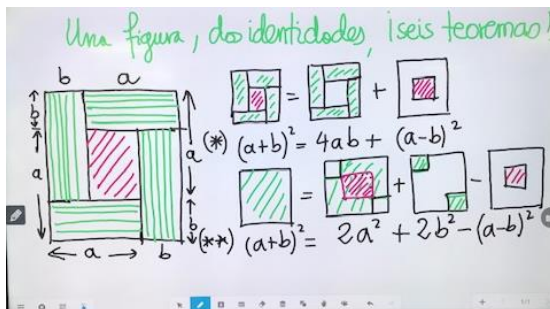 Una figura, dos identidades, ¡seis teoremas!
b a
b
a
a
b
a b
= +
(*) (a+b)² = 4ab + (a-b)²
= + -
(**) (a+b)² = 2a² + 2b² - (a-b)²